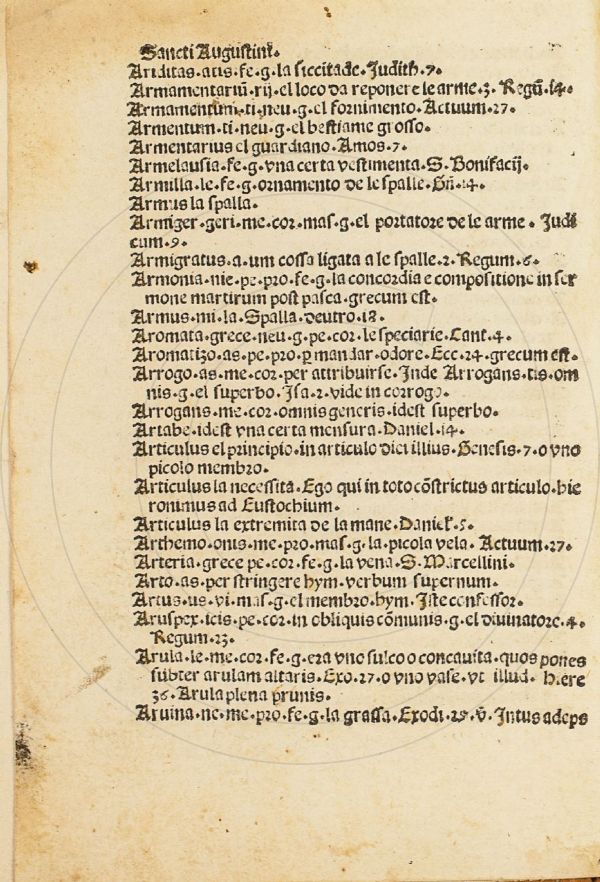 Sancti Augustini.
Ariditas.atis.fe.g.la siccitade.Judith.7.
Armamentariū.rij.el loco da reponere le arme.3. Regū.14.
Armamentum.ti.neu.g.el fornimento.Actuum.27.
Armentum.ti.neu.g.el bestiame grosso.
Armentarius el guardiano.Amos.7.
Armelausia.fe.g.vna certa vestimenta.S.Bonifacij.
Armilla.le.fe.g.ornamento de le spalle.Gñ.14.
Armus la spalla.
Armiger.geri.me.cor.mas.g.el portatore de le arme. Judi
cum.9.
Armigratus.a.um cossa ligata a le spalle.2.Regum.6.
Armonia.nie.pe.pro.fe.g.la concordia e compositione in ser
mone martirum post pasca.grecum est.
Armus.mi.la Spalla.deutro.18.
Aromata.grece.neu.g.pe.cor.le speciarie.Cant.4.
Aromatizo.as.pe.pro.p mandar.odore.Ecc.24.grecum est.
Arrogo.as.me.cor per attribuirse. Inde Arrogans.tis.om
nis.g.el superbo.Isa.2.vide in corrogo.
Arrogans.me.cor.omnis generis.idest superbo.
Artabe.idest vna certa mensura.Daniel.14.
Articulus el principio.in articulo diei illius.Genesis.7.o vno
picolo membro.
Articulus la necessita.Ego qui in toto cōstrictus articulo.hie
ronimus ad Eustochium.
Articulus la extremita de la mane.Daniel.5.
Arthemo.onis.me.pro.mas.g.la picola vela. Actuum.27.
Arteria.grece pe.cor.fe.g.la vena.S.Marcellini.
Arto.as.per stringere hym.verbum supernum.
Artus.us.vi.mas.g.el membro.hym.Iste confessor.
Aruspex.icis.pe.cor.in obliquis cōmunis.g.el divinatore.4.
Regum.23.
Arula.le.me.cor.fe.g.era vno sulco o concauita.quos pones
subter arulam altaris.Exo.27.o vno vase.vt illud. hiere
36.Arula plena prunis.
Aruina.ne.me.pro.fe.g.la grassa.Exodi.29.v̄.Intus adeps